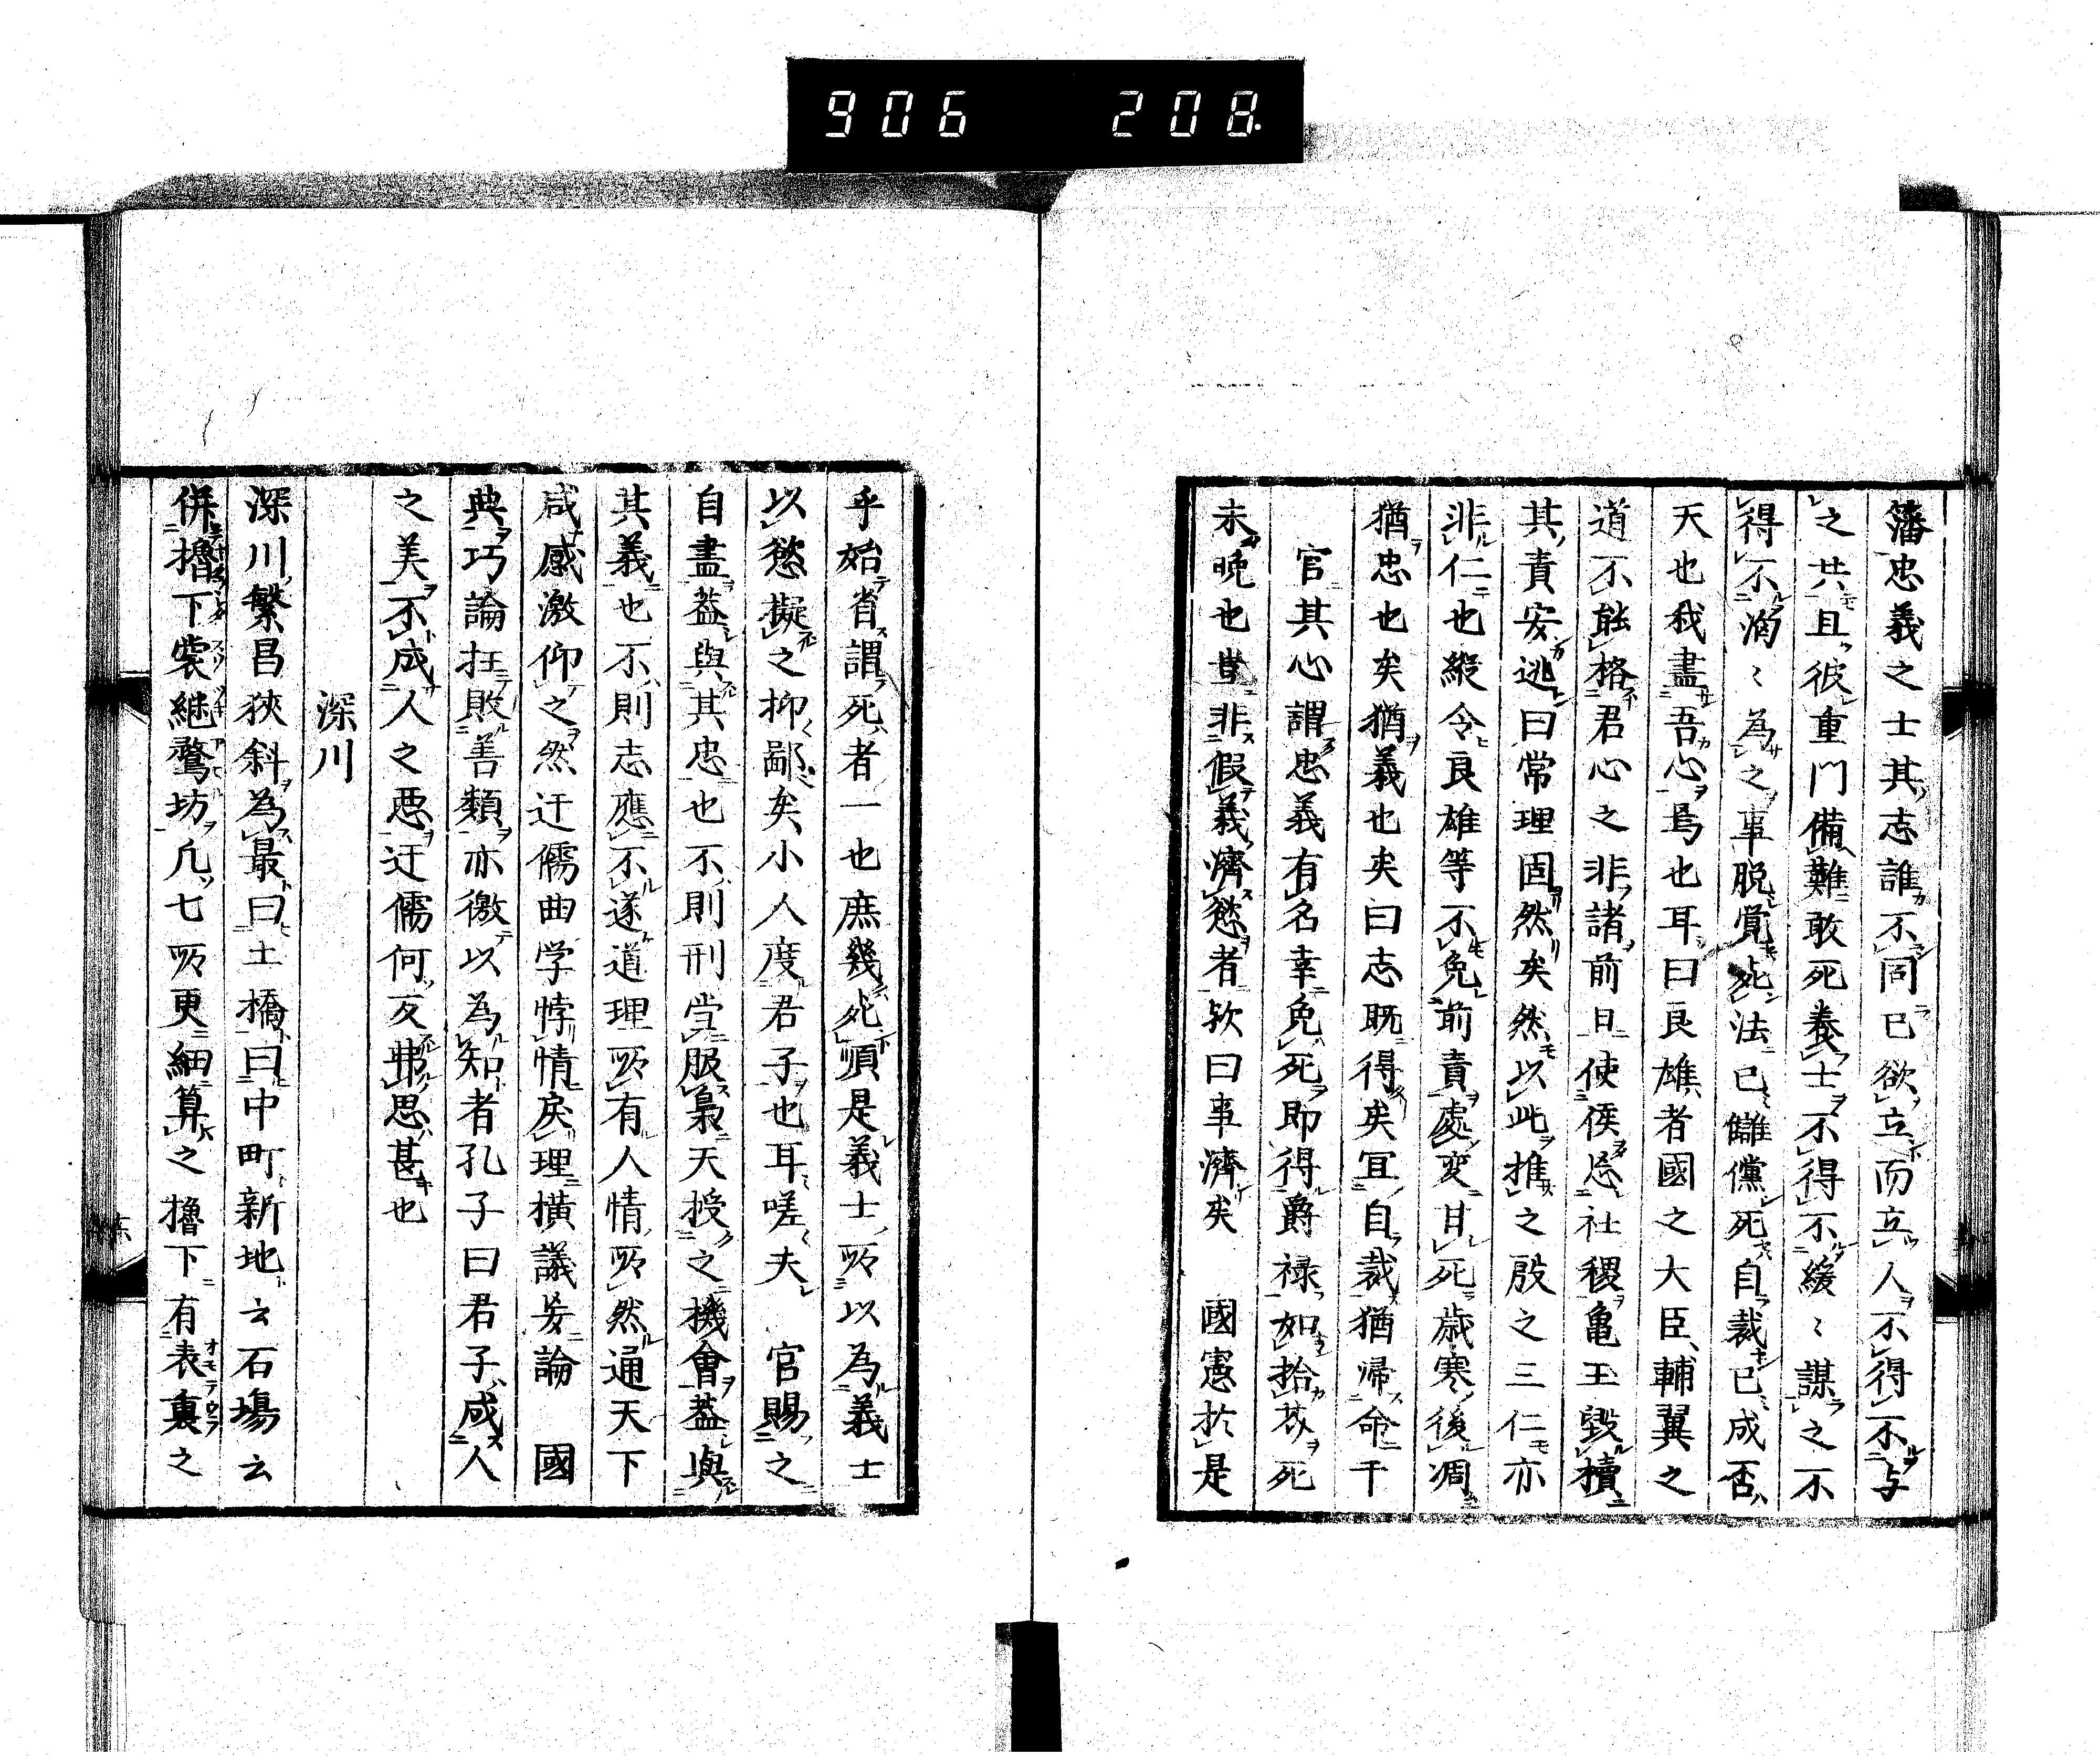 906 208.
藩忠義之士其志誰不同已欲立而立人不得不与
之共且彼重門備難敢死養士不得不緩〻謀之不
得不滴〻為之事脱覚死法已讎儻死自裁已成否
天也我盡吾心焉也耳曰良雄者國之大臣輔翼之
道不能格君心之非諸前日使侯忘社稷亀玉毀櫝
其責安逃曰常理固然矣然以此推之殷之三仁亦
非仁也縦令良雄等不免前責處変甘死歳寒後凋
猶忠也矣猶義也矣曰志既得矣冝自裁猶帰命于
官其心謂忠義有名幸免死即得爵禄如拾芥死
未晩也豈非假義濟慾者欤曰事濟矣　國憲於是
乎始省謂死者一也庶幾死順是義士所以為義士
以慾擬之抑鄙矣小人度君子也耳嗟夫　官賜之
自盡蓋與其忠也不則刑尝服梟天授之機會蓋與
其義也不則志應不遂道理所有人情所然通天下
咸感激仰之然迂儒曲学悖情戻理横議妄論　國
典巧論抂敗善類亦徼以為知者孔子曰君子成人
之美不成人之悪迂儒何反弗思甚也
深川
深川繁昌狹斜為最曰土橋曰中町新地云石場云
併櫓下裳継鶩坊凢七所更細算之櫓下有表裏之